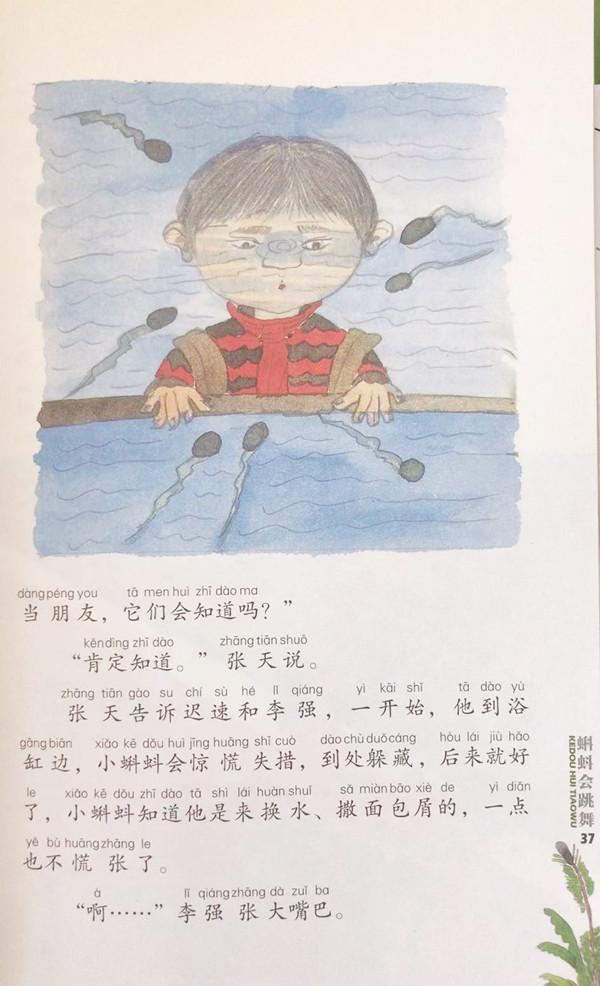 dàng péng you tā men huì zhī dào ma
当朋友，它们会知道吗？”
kěn dìng zhī dào zhāng tiān shuō
“肯定知道。”张天说。
zhāng tiān gào su chí sù hé lǐ qiáng yì kāi shǐ tā dào yù
张天告诉迟速和李强，一开始，他到浴
gāng biān xiǎo kē dǒu huì jīng huāng shī cuò dào chù duǒ cáng hòu lái jiù hǎo
缸边，小蝌蚪会惊慌失措，到处躲藏，后来就好
le xiǎo kē dǒu zhī dào tā shì lái huàn shuǐ sǎ miàn bāo xiè de yì diǎn
了，小蝌蚪知道他是来换水、撒面包屑的，一点
yě bù huāng zhāng le
也不慌张了。
à lǐ qiáng zhāng dà zuǐ ba
“啊……”李强张大嘴巴。
蝌蚪会跳舞
KEDOU HUI TIAOWU
37